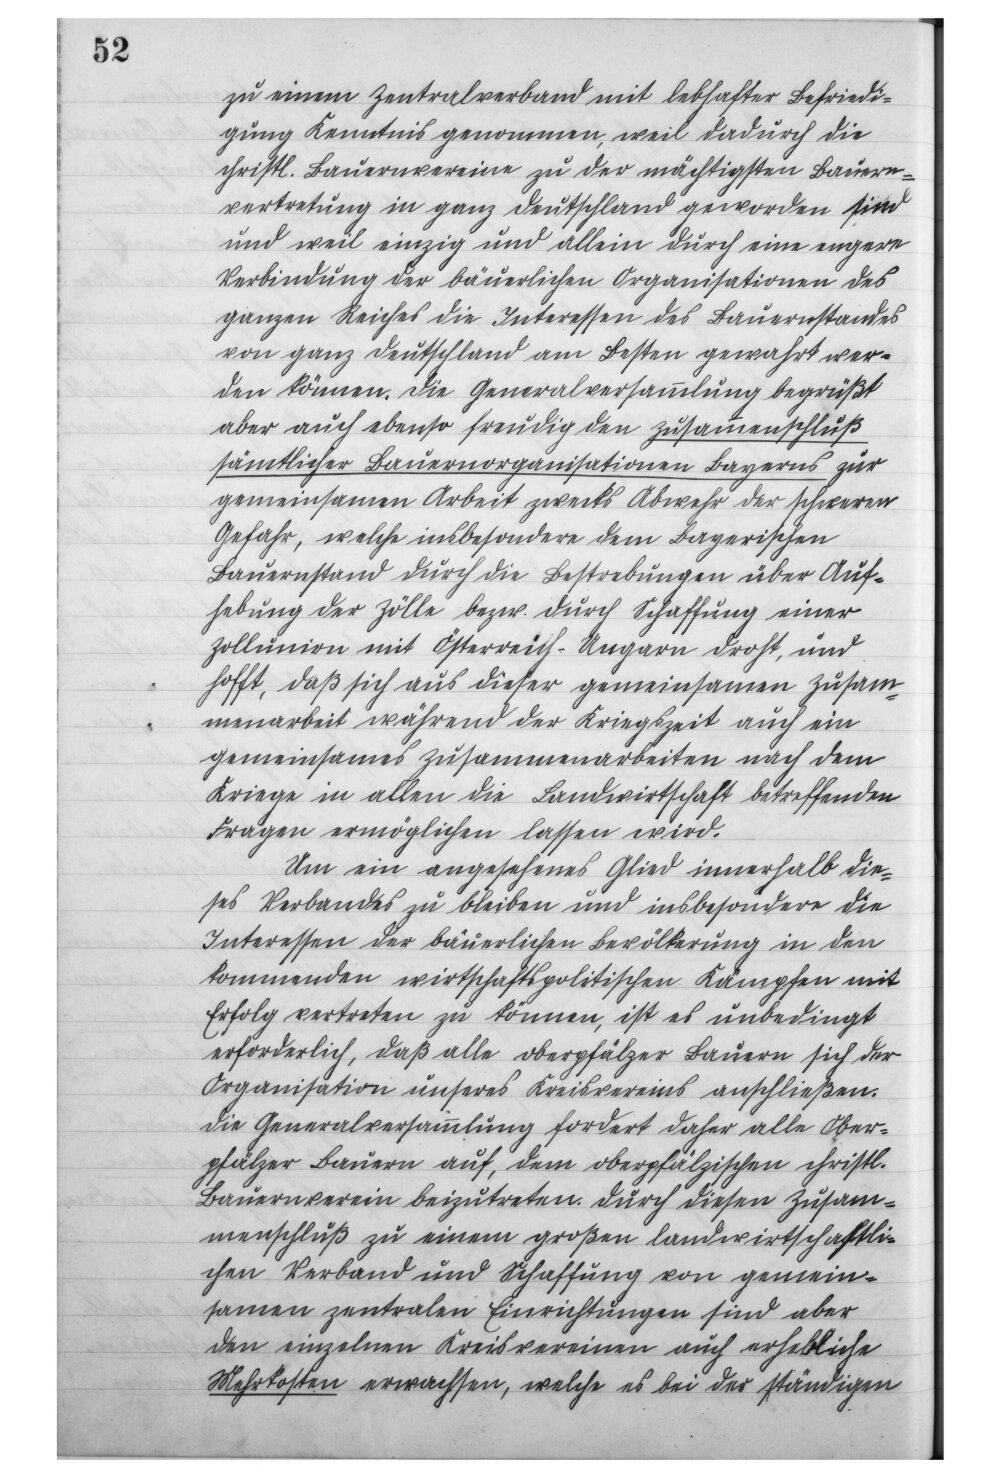 52
zu einem Zentralverband mit lebhafter Befriedi-
gung Kenntnis genommen, weil dadurch die
christl. Bauernvereine zu der mächtigsten Bauern-
vertretung in ganz Deutschland geworden sind
und weil einzig und allein durch eine engere
Verbindung der bäuerlichen Organisationen des
ganzen Reiches die Interessen des Bauernstandes
von ganz Deutschland am Besten gewahrt wer-
den können. Die Generalversam̅lung begrüßt
aber auch ebenso freudig den Zusam̅enschluß
sämtlicher Bauernorganisationen Bayerns zur
gemeinsamen Arbeit zwecks Abwehr der schweren
Gefahr, welche insbesondere dem Bayerischen
Bauernstand durch die Bestrebungen über Auf-
hebung der Zölle bezw. durch Schaffung einer
Zollunion mit Österreich-Ungarn droht, und
hofft, daß sich aus dieser gemeinsamen Zusam-
menarbeit während der Kriegszeit auch ein
gemeinsames Zusammenarbeiten nach dem
Kriege in allen die Landwirtschaft betreffenden
Fragen ermöglichen lassen wird.
Um ein angesehenes Glied innerhalb die-
ses Verbandes zu bleiben und insbesondere die
Interessen der bäuerlichen Bevölkerung in den
kommenden wirtschaftspolitischen Kämpfen mit
Erfolg vertreten zu können, ist es unbedingt
erforderlich, daß alle oberpfälzer Bauern sich der
Organisation unseres Kreisvereins anschließen.
Die Generalversam̅lung fordert daher alle Ober-
pfälzer Bauern auf, dem oberpfälzischen christl.
Bauernverein beizutreten. Durch diesen Zusam-
menschluß zu einem großen landwirtschaftli-
chen Verband und Schaffung von gemein-
samen zentralen Einrichtungen sind aber
den einzelnen Kreisvereinen auch erhebliche
Mehrkosten erwachsen, welche es bei der ständigen